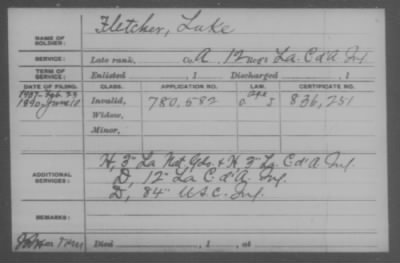 NAME OF SOLDIER: Fletcher, Luke
SERVICE: Late rank, Co. A, 12 Reg't La. C d'A Inf
TERM OF SERVICE: Enlisted , 1 Discharged , 1
DATE OF FILING. CLASS. APPLICATION NO. LAW. CERTIFICATE NO.
1890 June 12 Invalid, 780,582 836,251
Widow,
Minor,
ADDITIONAL SERVICES: H, 3" La Nat Gds. & H 3" La C. d'A Inf.
D, 12" La C. d'A. Inf.
D, 84" U.S.C. Inf.
REMARKS:
Died , 1 , at